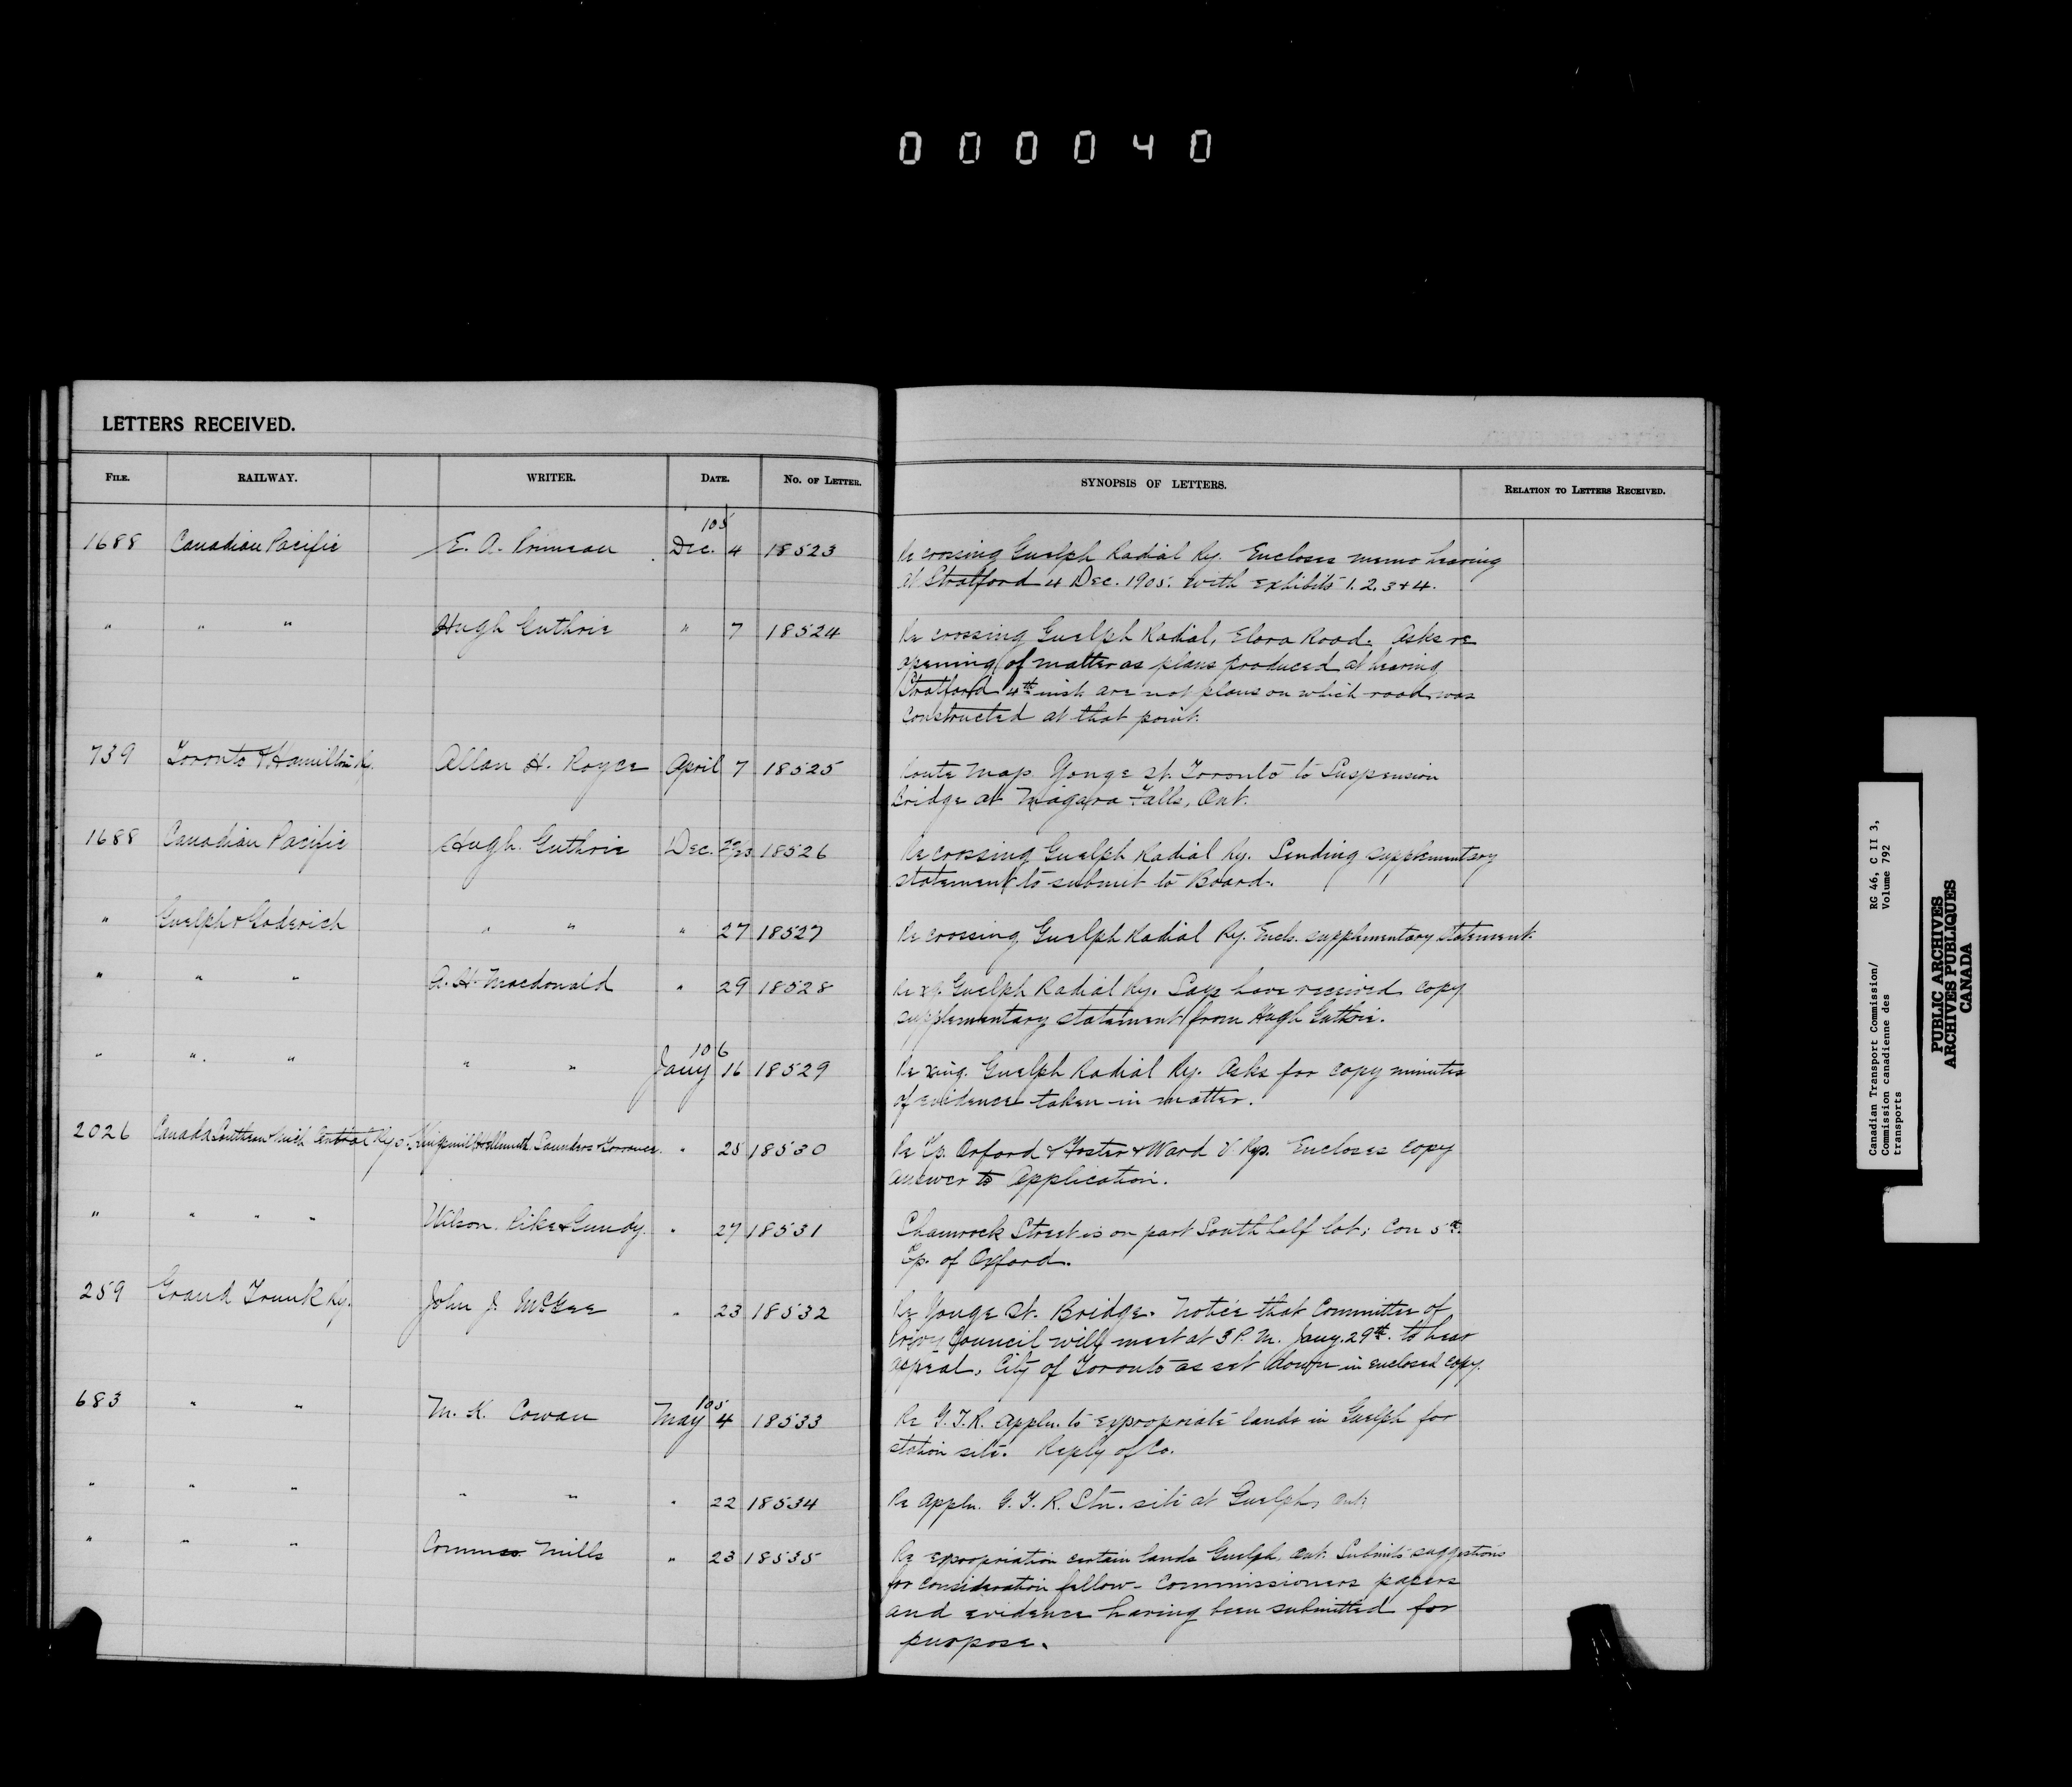 000040
LETTERS RECEIVED.
FILE. RAILWAY. WRITER. DATE. No. of Letter. SYNOPSIS OF LETTERS. Relation to Letters Received.
'05
1688 Canadian Pacific E. A. Primeau Dec. 4 18523 Re crossing Guelph Radial Ry. Encloses memo hearing
at Stratford 4 Dec. 1905. with exhibits 1. 2, 3 & 4.
" " " Hugh Guthrie " 7 18524 Re crossing Guelph Radial, Elora Road. Asks re
opening of matter as plans produced at hearing
Stratford 4th inst are not plans on which road was
constructed at that point.
739 Toronto & Hamilton Ry. Allan H. Royce April 7 18525 Route Map. Yonge St. Toronto to Suspension
Bridge at Niagara Falls, Ont.
1688 Canadian Pacific Hugh Guthrie Dec. 18526 Re crossing Guelph Radial Ry. Sending supplementary
statement to submit to Board.
" Guelph & Goderich " " " 27 18527 Re crossing Guelph Radial Ry. Encls. supplementary statement.
" " " A. H. Macdonald " 29 18528 Re xg. Guelph Radial Ry. Says have received copy
supplementary statement from Hugh Guthrie.
'06
" " " " " Jany 16 18529 Re xing. Guelph Radial Ry. Asks for copy minutes
of evidence taken in matter.
2026 Canada Southern Mich Central Ry Co. Kingsmill Hellmuth Saunders & Torrance. " 25 18530 Re Tp. Orford & Foster & Ward V. Rys. Encloses copy
answer to Application.
" " " " Wilson, Pike & Gundy. " 27 18531 Shamrock Street is on part South half lot; Con 5th.
Tp. of Orford.
259 Grand Trunk Ry. John J. McGee " 23 18532 Re Yonge St. Bridge. Notice that Committee of
Privy Council will meet at 3 P.M. Jany. 29th. to hear
appeal, City of Toronto as set down in enclosed copy.
'05
683 " " M. K. Cowan May 4 18533 Re G.T.R. Appln. to expropriate lands in Guelph for
station site. Reply of Co.
" " " " " " 22 18534 Re Appln. G. T. R. Stn. site at Guelph, Ont.
" " " Commsr. Mills " 23 18535 Re expropriation certain lands Guelph, Ont. Submits suggestions
for consideration fellow-Commissioners papers
and evidence having been submitted for
purpose.
Canadian Transport Commission/ RG 46, C II 3,
Commission canadienne des Volume 792
transports
PUBLIC ARCHIVES
ARCHIVES PUBLIQUES
CANADA